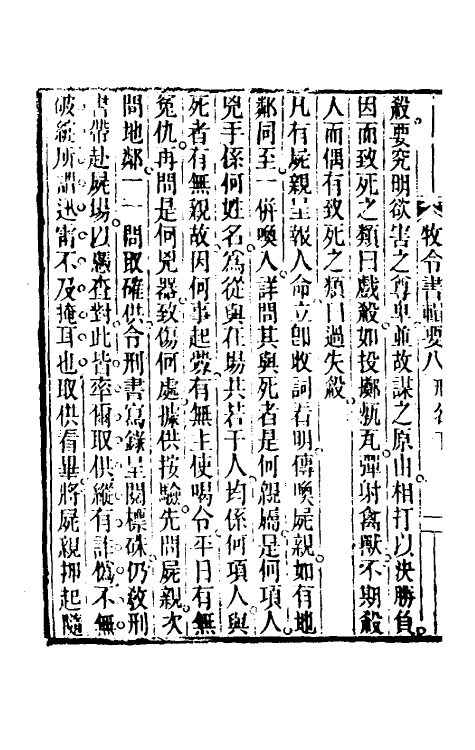 牧令書輯要八 刑名下
殺要究明欲害之尊卑並故謀之原由相打以決勝負
因而致死之類曰戲殺如投擲甎瓦彈射禽獸不期殺
人而偶有致死之類曰過失殺
凡有屍親呈報人命立卽收詞看明傳喚屍親如有地
鄰同至一併喚入詳問其與死者是何親屬是何項人
兇手係何姓名爲從與在場共若干人均係何項人與
死者有無親故因何事起釁有無主使喝令平日有無
寃仇再問是何兇器致傷何處據供按驗先問屍親次
問地鄰一一問取確供令刑書寫錄呈閱標硃仍敎刑
書帶赴屍場以憑查對此皆率爾取供縱有詐僞不無
破綻所謂迅雷不及掩耳也取供看畢將屍親押起隨